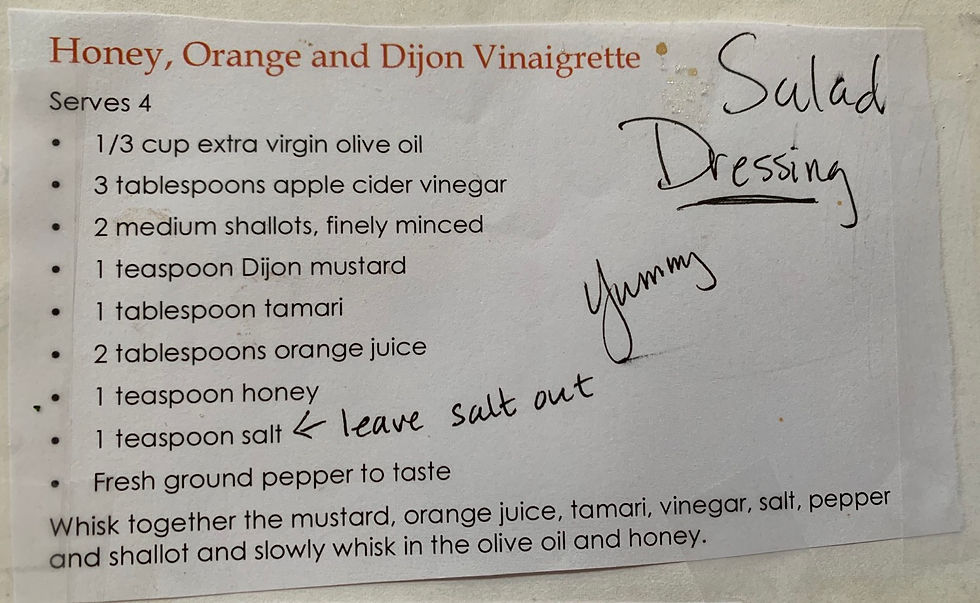 Honey, Orange and Dijon Vinaigrette
Salad
Dressing
Serves 4
• 1/3 cup extra virgin olive oil
• 3 tablespoons apple cider vinegar
• 2 medium shallots, finely minced
• 1 teaspoon Dijon mustard
Yummy
• 1 tablespoon tamari
• 2 tablespoons orange juice
• 1 teaspoon honey
• 1 teaspoon salt ← leave salt out
• Fresh ground pepper to taste
Whisk together the mustard, orange juice, tamari, vinegar, salt, pepper
and shallot and slowly whisk in the olive oil and honey.